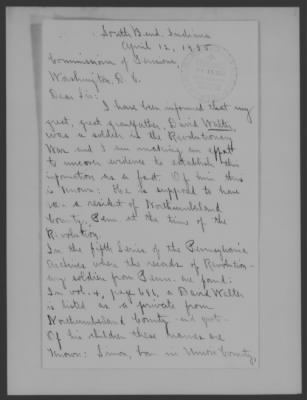 South Bend, Indiana
April 12, 1935
Commissioner of Pensions,
Washington, D. C.
Dear Sir:
I have been informed that my
great, great grandfather, David Walter,
was a soldier in the Revolutionary
War and I am making an effort
to uncover evidence to establish this
information as a fact. Of him this
is known: He is supposed to have
a resident of Northumberland
County, Penn at the time of the
Revolution.
In the fifth Series of the Pennsylvania
Archives where the records of Revolution-
ary soldiers from Penn. are found:
In vol. 4, page 691, a David Walter
is listed as a private from
Northumberland County
Of his children these names are
known: Simon, born in Union County,